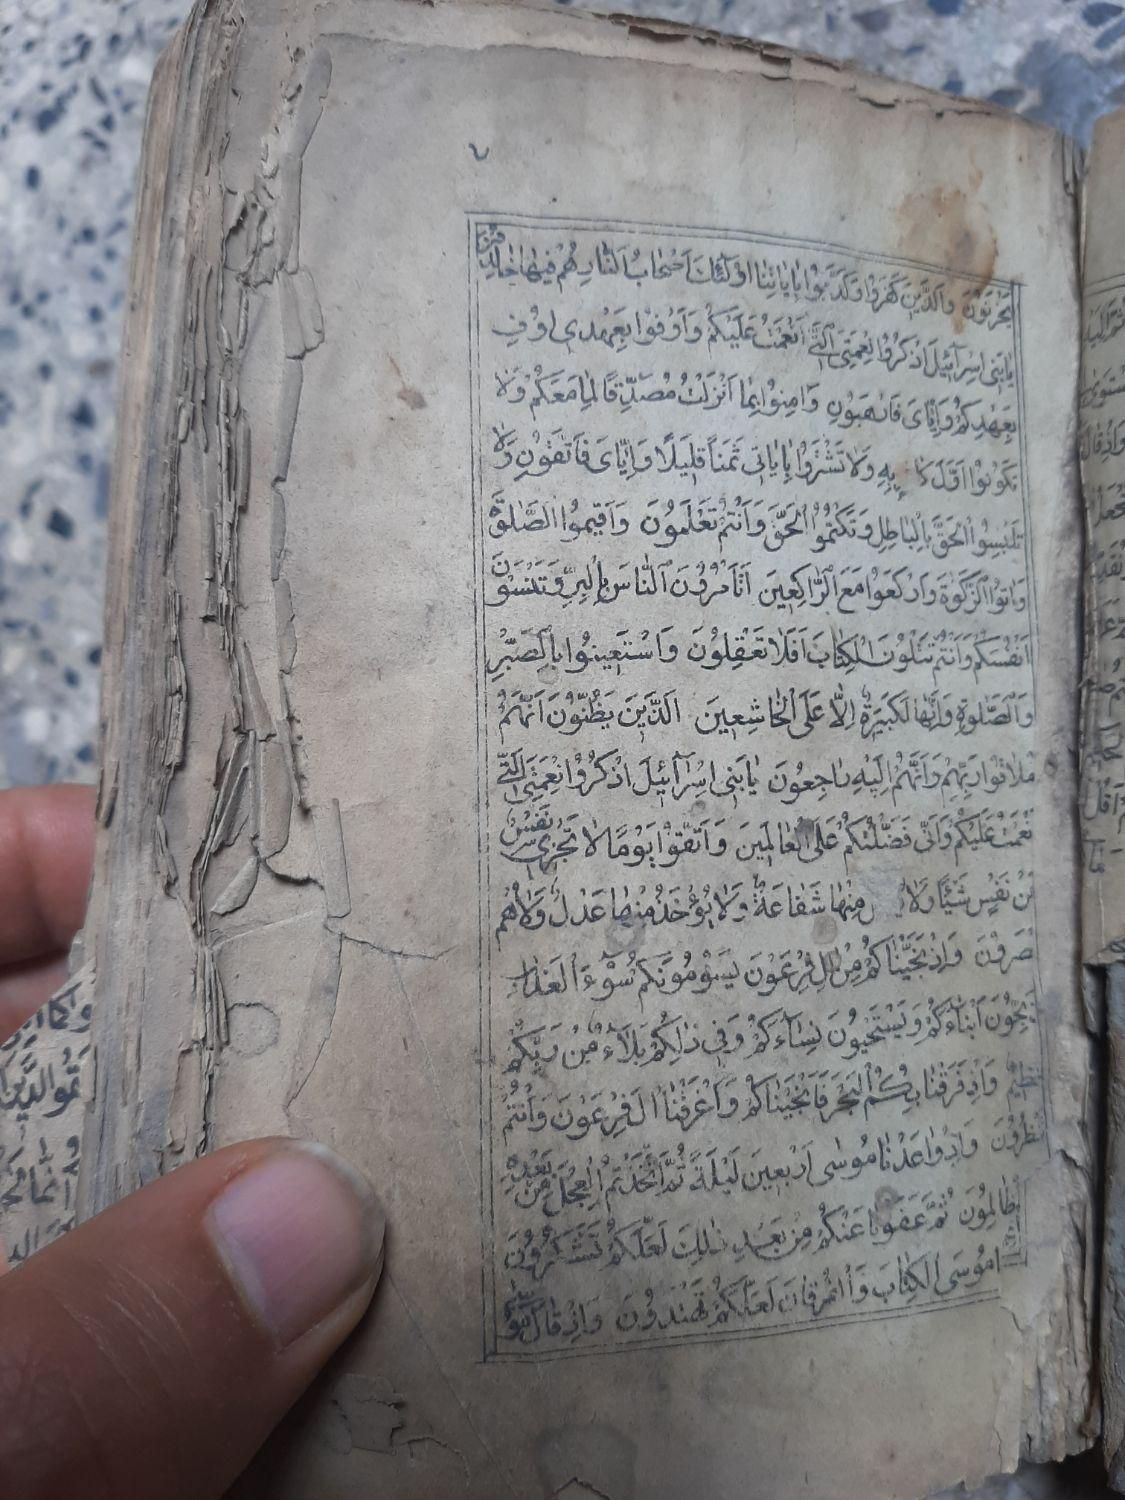 ٧
يَحْزَنُونَ وَالَّذِينَ كَفَرُوا وَكَذَّبُوا بِاٰيَاتِنَا اُولٰئِكَ اَصْحَابُ النَّارِ هُمْ فِيهَا خَالِدُونَ
يَابَنِى اِسْرَآئِيلَ اذْكُرُوا نِعْمَتِىَ الَّتِى اَنْعَمْتُ عَلَيْكُمْ وَاَوْفُوا بِعَهْدِى اُوفِ
بِعَهْدِكُمْ وَاِيَّاىَ فَارْهَبُونِ وَاٰمِنُوا بِمَا اَنْزَلْتُ مُصَدِّقًا لِمَا مَعَكُمْ وَلَا
تَكُونُوا اَوَّلَ بِهِ وَلَا تَشْتَرُوا بِاٰيَاتِى ثَمَنًا قَلِيلًا وَاِيَّاىَ فَاتَّقُونِ وَلَا
تَلْبِسُوا الْحَقَّ بِالْبَاطِلِ وَتَكْتُمُوا الْحَقَّ وَاَنْتُمْ تَعْلَمُونَ وَاَقِيمُوا الصَّلٰوةَ
وَاٰتُوا الزَّكٰوةَ وَارْكَعُوا مَعَ الرَّاكِعِينَ اَتَاْمُرُونَ النَّاسَ بِالْبِرِّ وَتَنْسَوْنَ
اَنْفُسَكُمْ وَاَنْتُمْ تَتْلُونَ الْكِتَابَ اَفَلَا تَعْقِلُونَ وَاسْتَعِينُوا بِالصَّبْرِ
وَالصَّلٰوةِ وَاِنَّهَا لَكَبِيرَةٌ اِلَّا عَلَى الْخَاشِعِينَ الَّذِينَ يَظُنُّونَ اَنَّهُمْ
مُلَاقُوا رَبِّهِمْ وَاَنَّهُمْ اِلَيْهِ رَاجِعُونَ يَابَنِى اِسْرَآئِيلَ اذْكُرُوا نِعْمَتِىَ الَّتِى
نْعَمْتُ عَلَيْكُمْ وَاَنِّى فَضَّلْتُكُمْ عَلَى الْعَالَمِينَ وَاتَّقُوا يَوْمًا لَا تَجْزِى نَفْسٌ
عَنْ نَفْسٍ شَيْئًا وَلَا مِنْهَا شَفَاعَةٌ وَلَا يُؤْخَذُ مِنْهَا عَدْلٌ وَلَا هُمْ
صَرُونَ وَاِذْ نَجَّيْنَاكُمْ مِنْ اٰلِ فِرْعَوْنَ يَسُومُونَكُمْ سُوْٓءَ الْعَذَابِ
بِّحُونَ اَبْنَاءَكُمْ وَيَسْتَحْيُونَ نِسَاءَكُمْ وَفِى ذٰلِكُمْ بَلَاءٌ مِنْ رَبِّكُمْ
عَظِيمٌ وَاِذْ فَرَقْنَا بِكُمُ الْبَحْرَ فَاَنْجَيْنَاكُمْ وَاَغْرَقْنَا اٰلَ فِرْعَوْنَ وَاَنْتُمْ
تَنْظُرُونَ وَاِذْ وَاعَدْنَا مُوسٰى اَرْبَعِينَ لَيْلَةً ثُمَّ اتَّخَذْتُمُ الْعِجْلَ مِنْ بَعْدِهِ
ظَالِمُونَ ثُمَّ عَفَوْنَا عَنْكُمْ مِنْ بَعْدِ ذٰلِكَ لَعَلَّكُمْ تَشْكُرُونَ
مُوسَى الْكِتَابَ وَالْفُرْقَانَ لَعَلَّكُمْ تَهْتَدُونَ وَاِذْ قَالَ